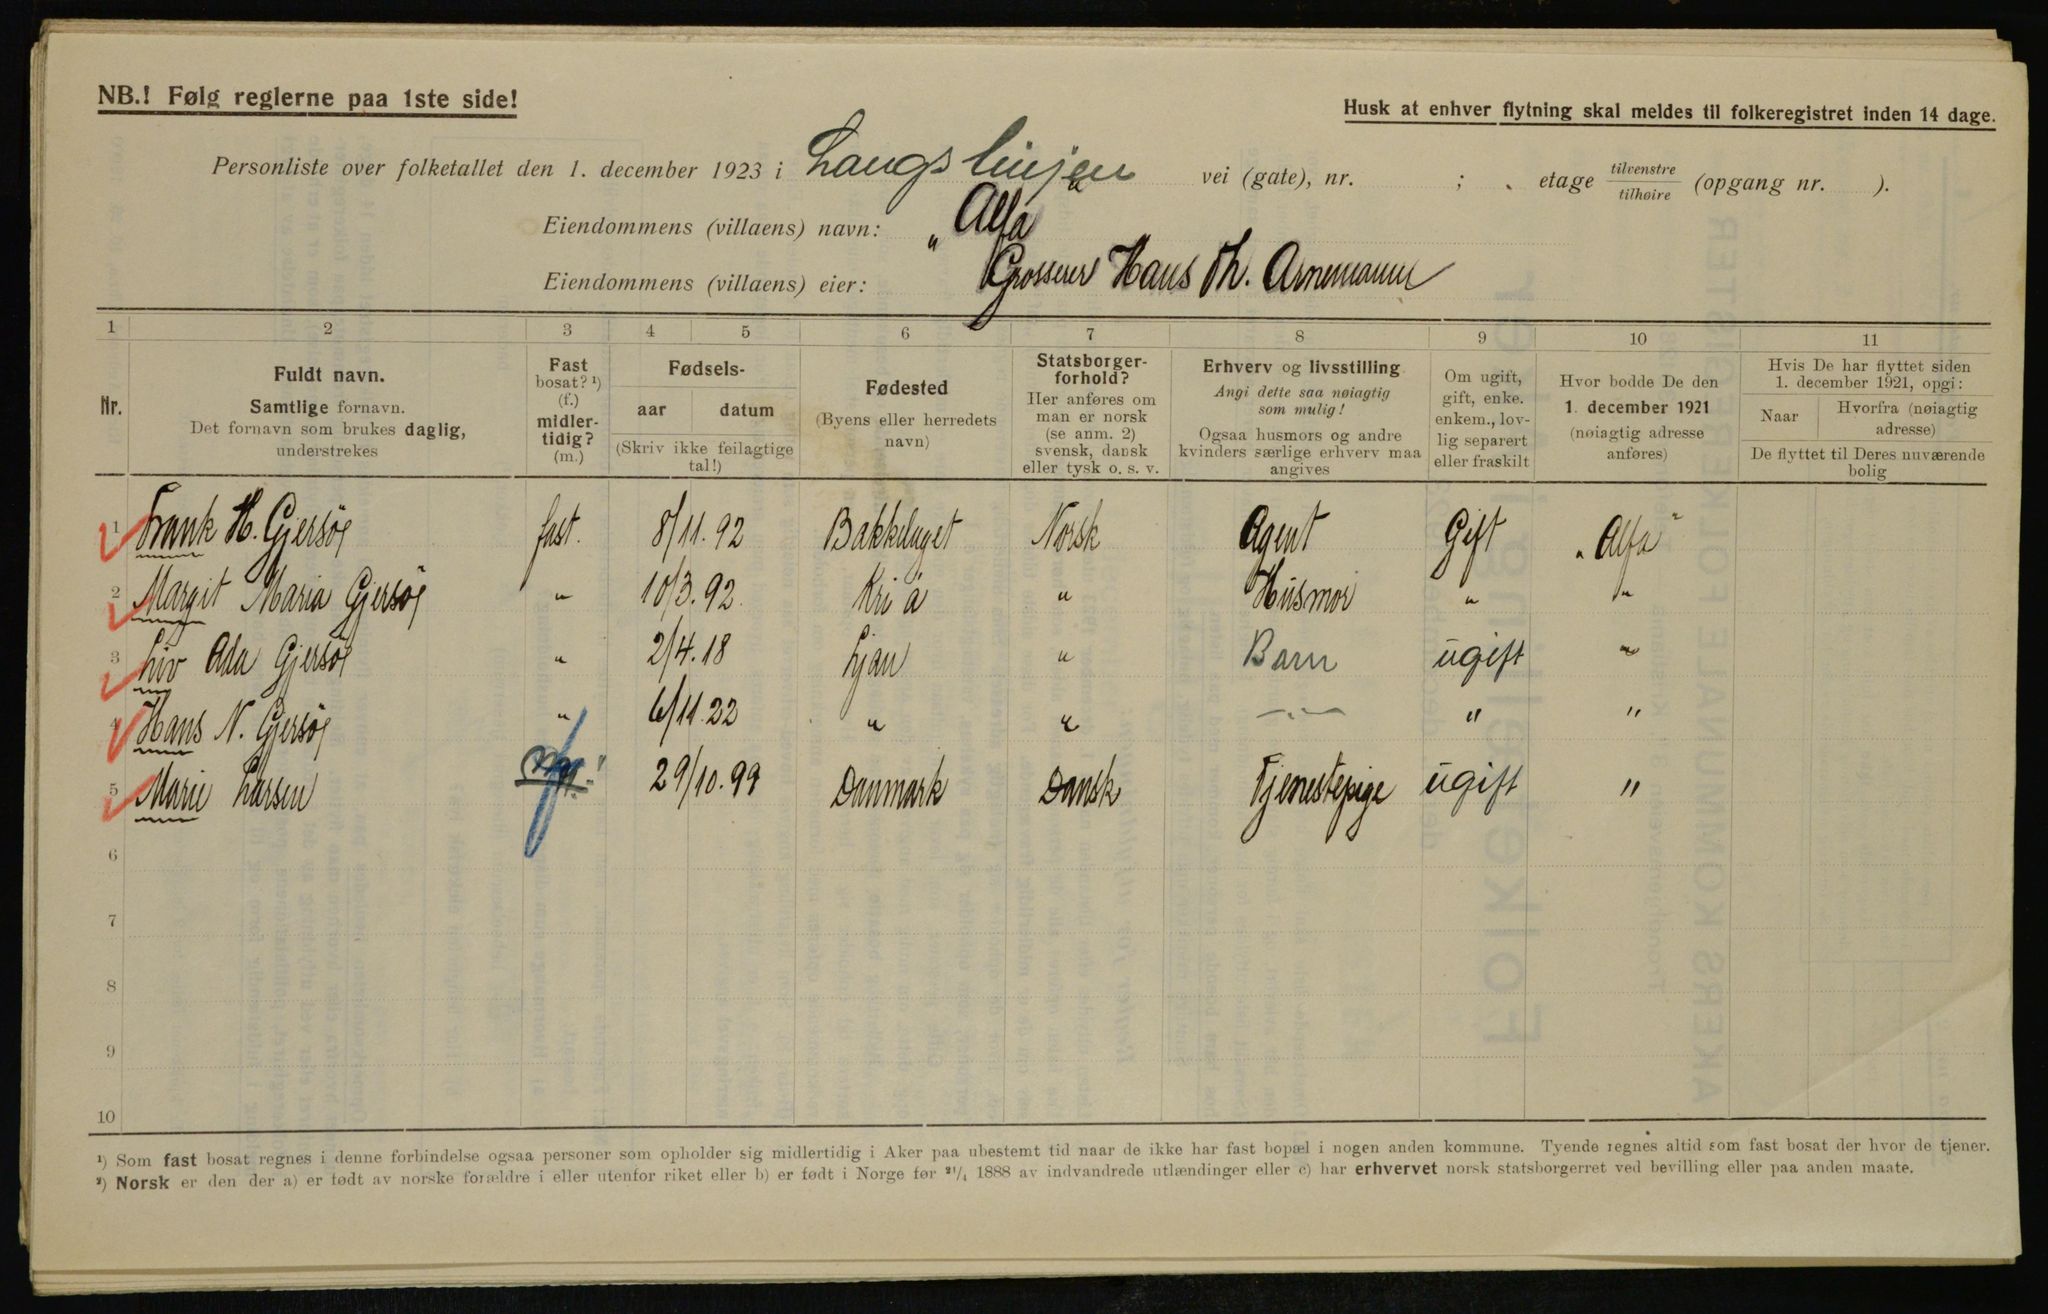 NB.! Følg reglerne paa 1ste side!
Husk at enhver flytning skal meldes til folkeregistret inden 14 dage.
Personliste over folketallet den 1. december 1923 i Langslinjen vei (gate), nr. ; etage tilvenstre / tilhøire (opgang nr. ).
Eiendommens (villaens) navn: „Alfa"
Eiendommens (villaens) eier: Grosserer Hans Th. Arnemann
1 2 3 4 5 6 7 8 9 10 11
Nr.
Fuldt navn.
Samtlige fornavn.
Det fornavn som brukes daglig,
understrekes
Fast
bosat? ¹)
(f.)
midler-
tidig?
(m.)
Fødsels-
aar datum
(Skriv ikke feilagtige
tal!)
Fødested
(Byens eller herredets
navn)
Statsborger-
forhold?
Her anføres om
man er norsk
(se anm. 2)
svensk, dansk
eller tysk o. s. v.
Erhverv og livsstilling
Angi dette saa nøiagtig
som mulig!
Ogsaa husmors og andre
kvinders særlige erhverv maa
angives
Om ugift,
gift, enke.
enkem., lov-
lig separert
eller fraskilt
Hvor bodde De den
1. december 1921
(nøiagtig adresse
anføres)
Hvis De har flyttet siden
1. december 1921, opgi:
Naar Hvorfra (nøiagtig
adresse)
De flyttet til Deres nuværende
bolig
1 Frank H. Gjersøe fast. 8/11. 92 Bakkelaget Norsk Agent Gift „Alfa"
2 Margit Maria Gjersøe " 10/3. 92. Kri a " Husmor " "
3 Liv Ada Gjersøe " 2/4. 18 Ljan " Barn ugift "
4 Hans N. Gjersøe " 6/11. 22 " " — " — " "
5 Marie Larsen f 29/10. 99 Danmark Dansk Tjenestepige ugift "
6
7
8
9
10
¹) Som fast bosat regnes i denne forbindelse ogsaa personer som opholder sig midlertidig i Aker paa ubestemt tid naar de ikke har fast bopæl i nogen anden kommune. Tyende regnes altid som fast bosat der hvor de tjener.
²) Norsk er den der a) er født av norske forældre i eller utenfor riket eller b) er født i Norge før ²¹/₄ 1888 av indvandrede utlændinger eller c) har erhvervet norsk statsborgerret ved bevilling eller paa anden maate.